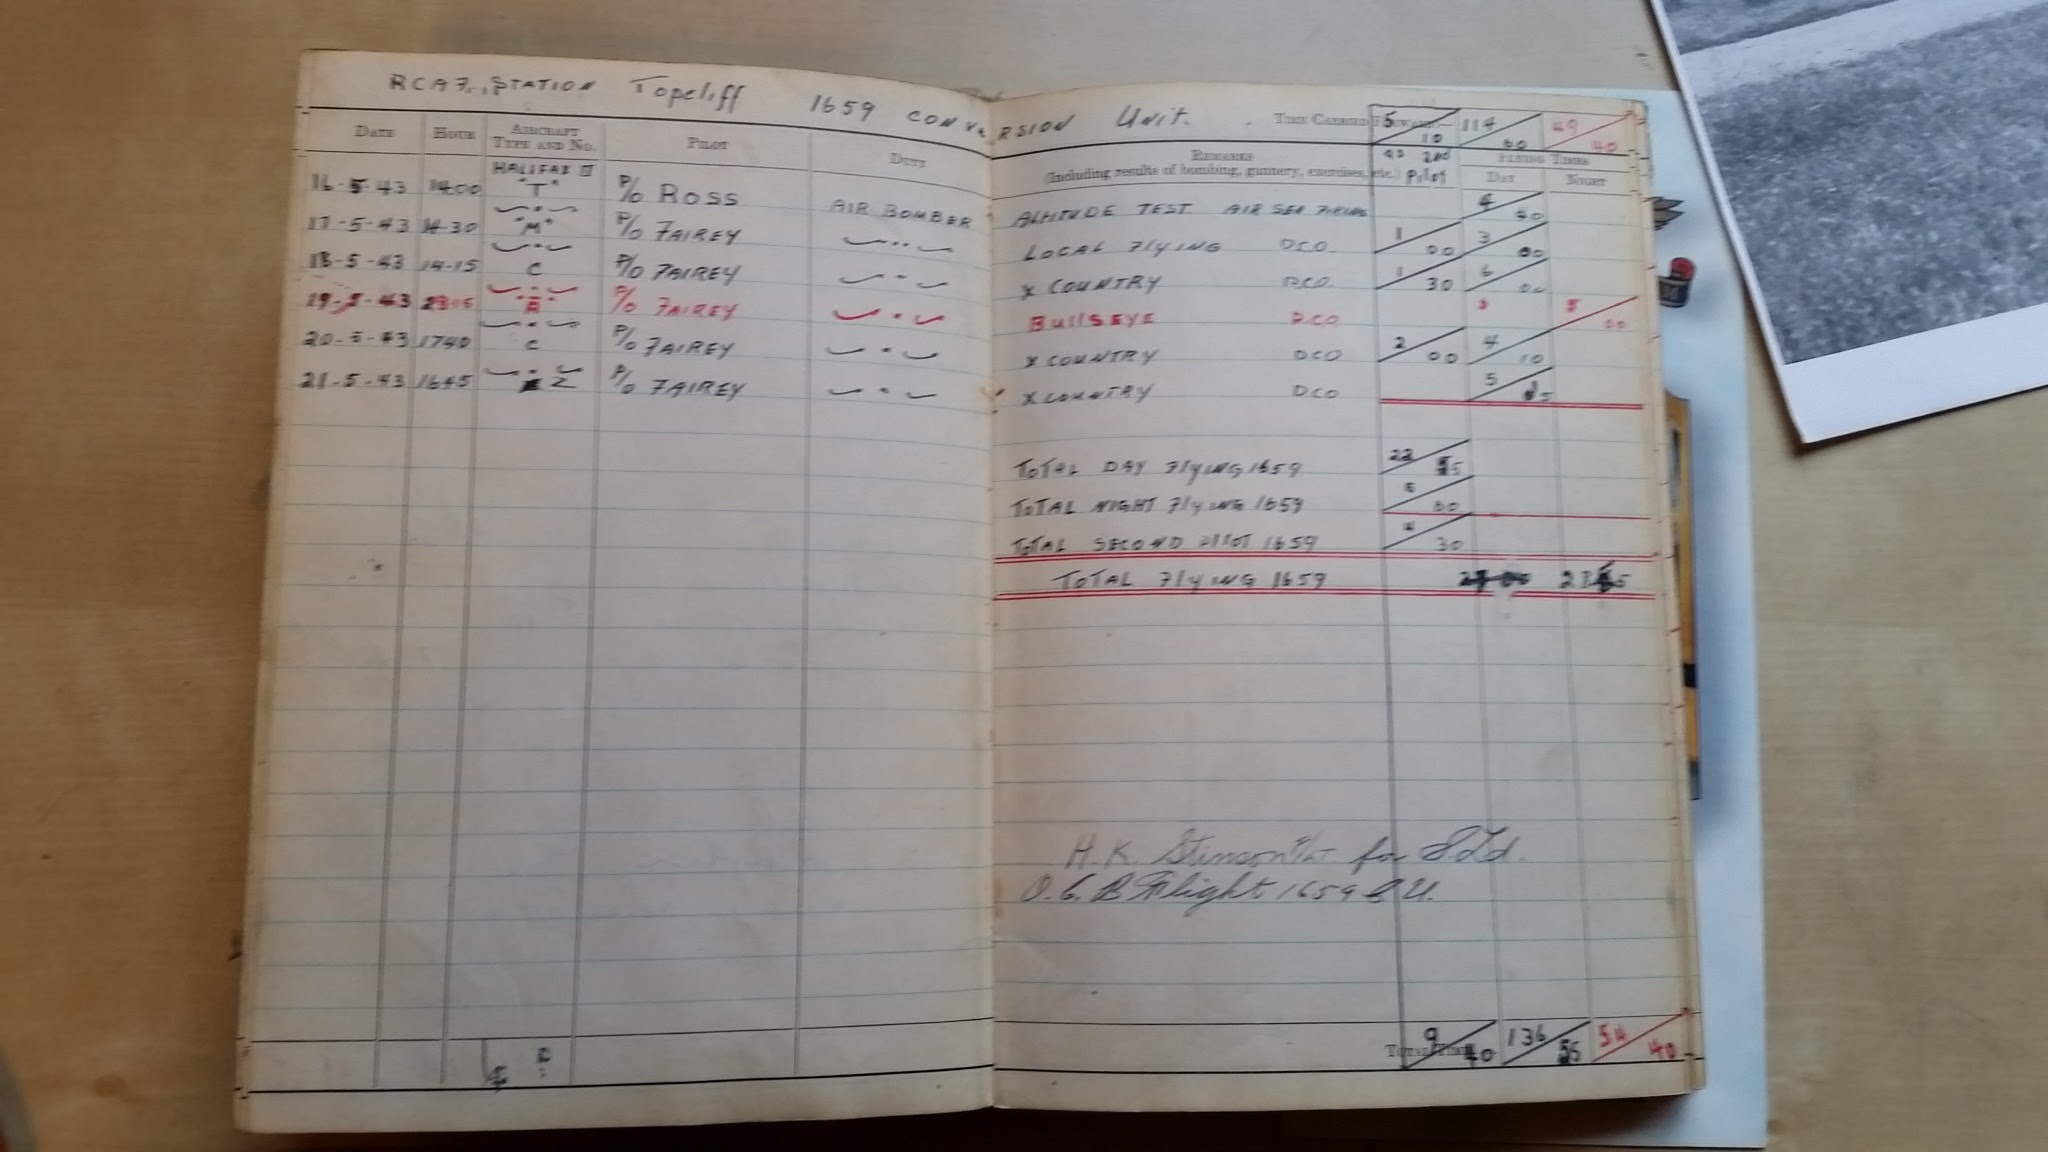 RCAF., STATION Topcliff 1659 CONVERSION Unit. TIME CARRIED FORWARD:— 5/10 114/60 49/40
DATE HOUR AIRCRAFT TYPE AND NO. PILOT DUTY REMARKS (Including results of bombing, gunnery, exercises, etc.) as 2nd Pilot FLYING TIMES DAY NIGHT
16-5-43 1400 HALIFAX II "T" P/O ROSS AIR BOMBER ALTITUDE TEST. AIR SEA FIRING 4/40
17-5-43 "M" P/O FAIREY LOCAL FlyING DCO. 1/00 3/00
18-5-43 14-15 C P/O FAIREY X COUNTRY DCO. 1/30 6/00
19-5-43 P/O FAIREY BullSEYE DCO. 5/00
20-5-43 1740 C P/O FAIREY X COUNTRY DCO 2/00 4/10
21-5-43 1645 Z P/O FAIREY X COUNTRY DCO 5/
TOTAL DAY FlyING 1659 22/
TOTAL NIGHT FlyING 1659 5/00
TOTAL SECOND PILOT 1659 4/30
TOTAL FlyING 1659
H. K. Stinson F/Lt for S/Ld.
O. C. B Flight 1659 C.U.
TOTAL TIME 9/40 136/55 54/40